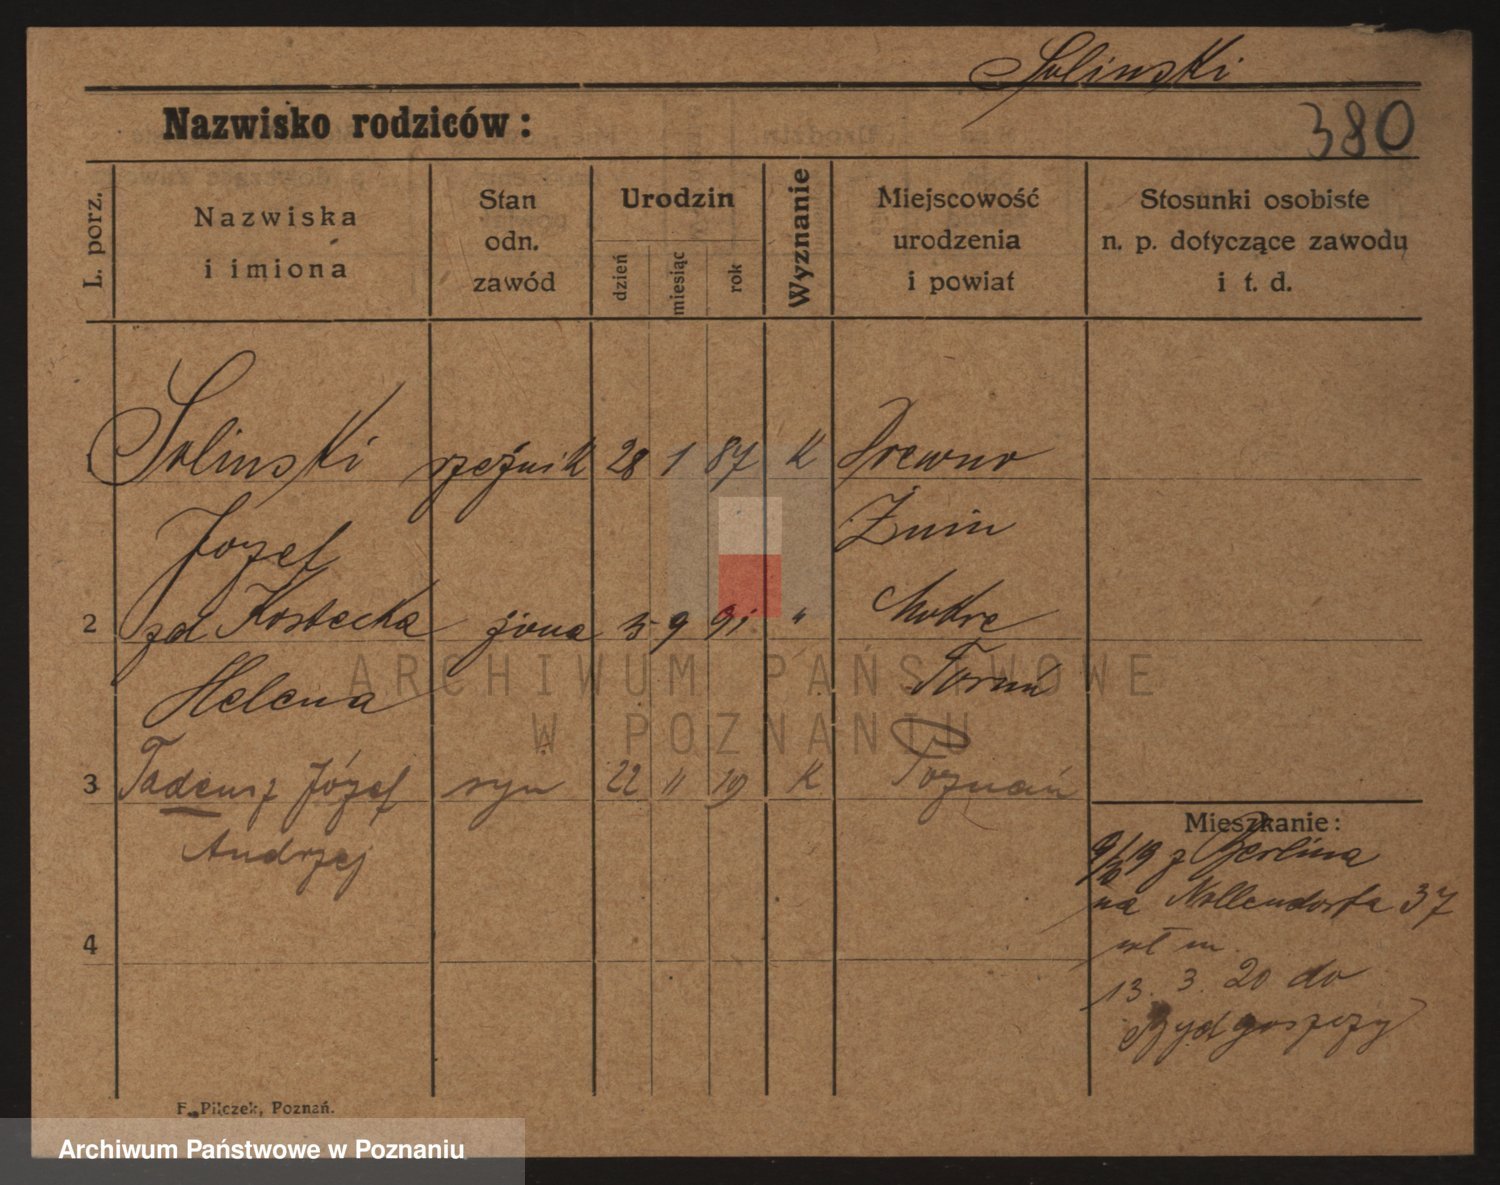 Solinski
Nazwisko rodziców:
380
L. porz.
Nazwiska
i imiona
Stan
odn.
zawód
Urodzin
dzień
miesiąc
rok
Wyznanie
Miejscowość
urodzenia
i powiat
Stosunki osobiste
n. p. dotyczące zawodu
i t. d.
1 Solinski rzeźnik 28 1 87 K Drewno
Józef Żnin
2 zd Kosbecka żona 5 9 91 " Mokre
Helena Toruń
3 Tadeusz Józef syn 22 11 19 K Poznań
Andrzej
4
Mieszkanie:
19 z Berlina
na Nollendorfa 37
wł m.
13. 3. 20 do
Bydgoszczy
F. Pilczek, Poznań.
ARCHIWUM PAŃSTWOWE
W POZNANIU
Archiwum Państwowe w Poznaniu